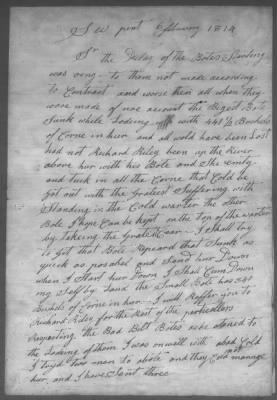 point February 1814
Sr the Delay of the Botes Starting
was oing to them not made according
to Contract and worse then all when they
ware made of noe account the Bigest Bote
Sunk while Loding with 448½ Bushels
of Corne in hur and all wold have ben Lost
had not Richard Riley been up the River
above hur with his Bote and She emty
and tuck in all the Corne that Cold be
got out with the Gratest Suffering with
Standing in the Cold warter the other
Bote I hope Can be kept on the Top of the warter
by takeing the Grate Care I shall try
to get that Bote Repeard that Sunk as
quick as posabel and Send hur Down
when I Start hur Down I Shall Cum Down
my Self by Land the Small Bote has 540
Bushels of Corne in hur I will Reffer you to
Richard Riley for the Rest of the particulers
Respecting the Bad Bilt Botes
the Loding of them I was onwell with abad Cold
I two men to and they Cold not manage
hur, and I have Sent three